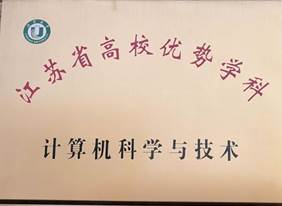 江苏省高校优势学科
计算机科学与技术